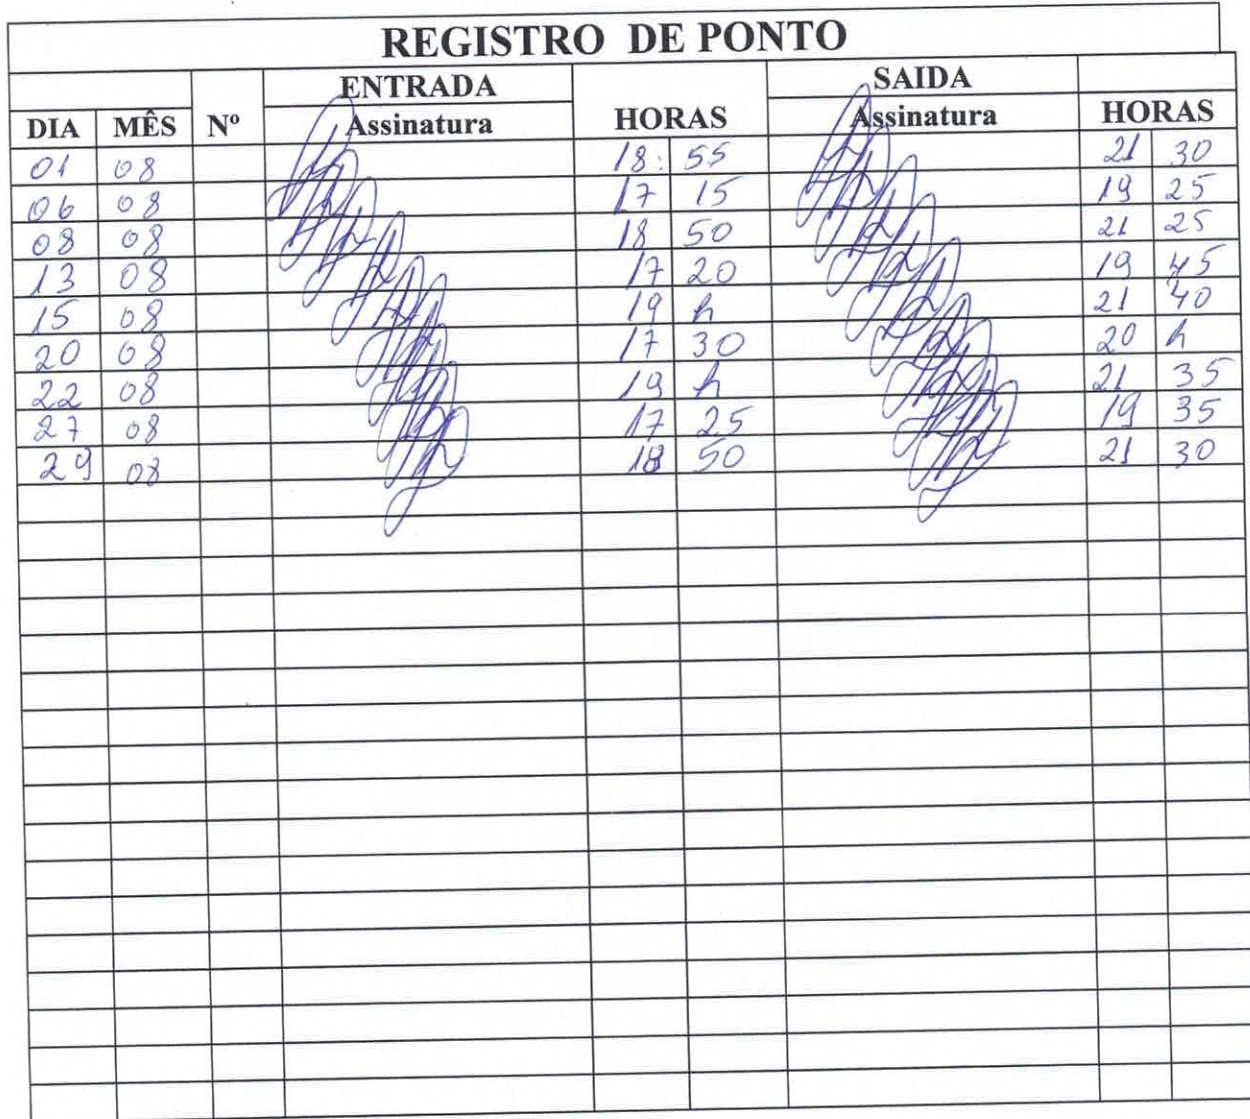 REGISTRO DE PONTO
ENTRADA SAIDA
DIA MÊS Nº Assinatura HORAS Assinatura HORAS
01 08 18: 55 21 30
06 08 17 15 19 25
08 08 18 50 21 25
13 08 17 20 19 45
15 08 19 h 21 40
20 08 17 30 20 h
22 08 19 h 21 35
27 08 17 25 19 35
29 08 18 50 21 30